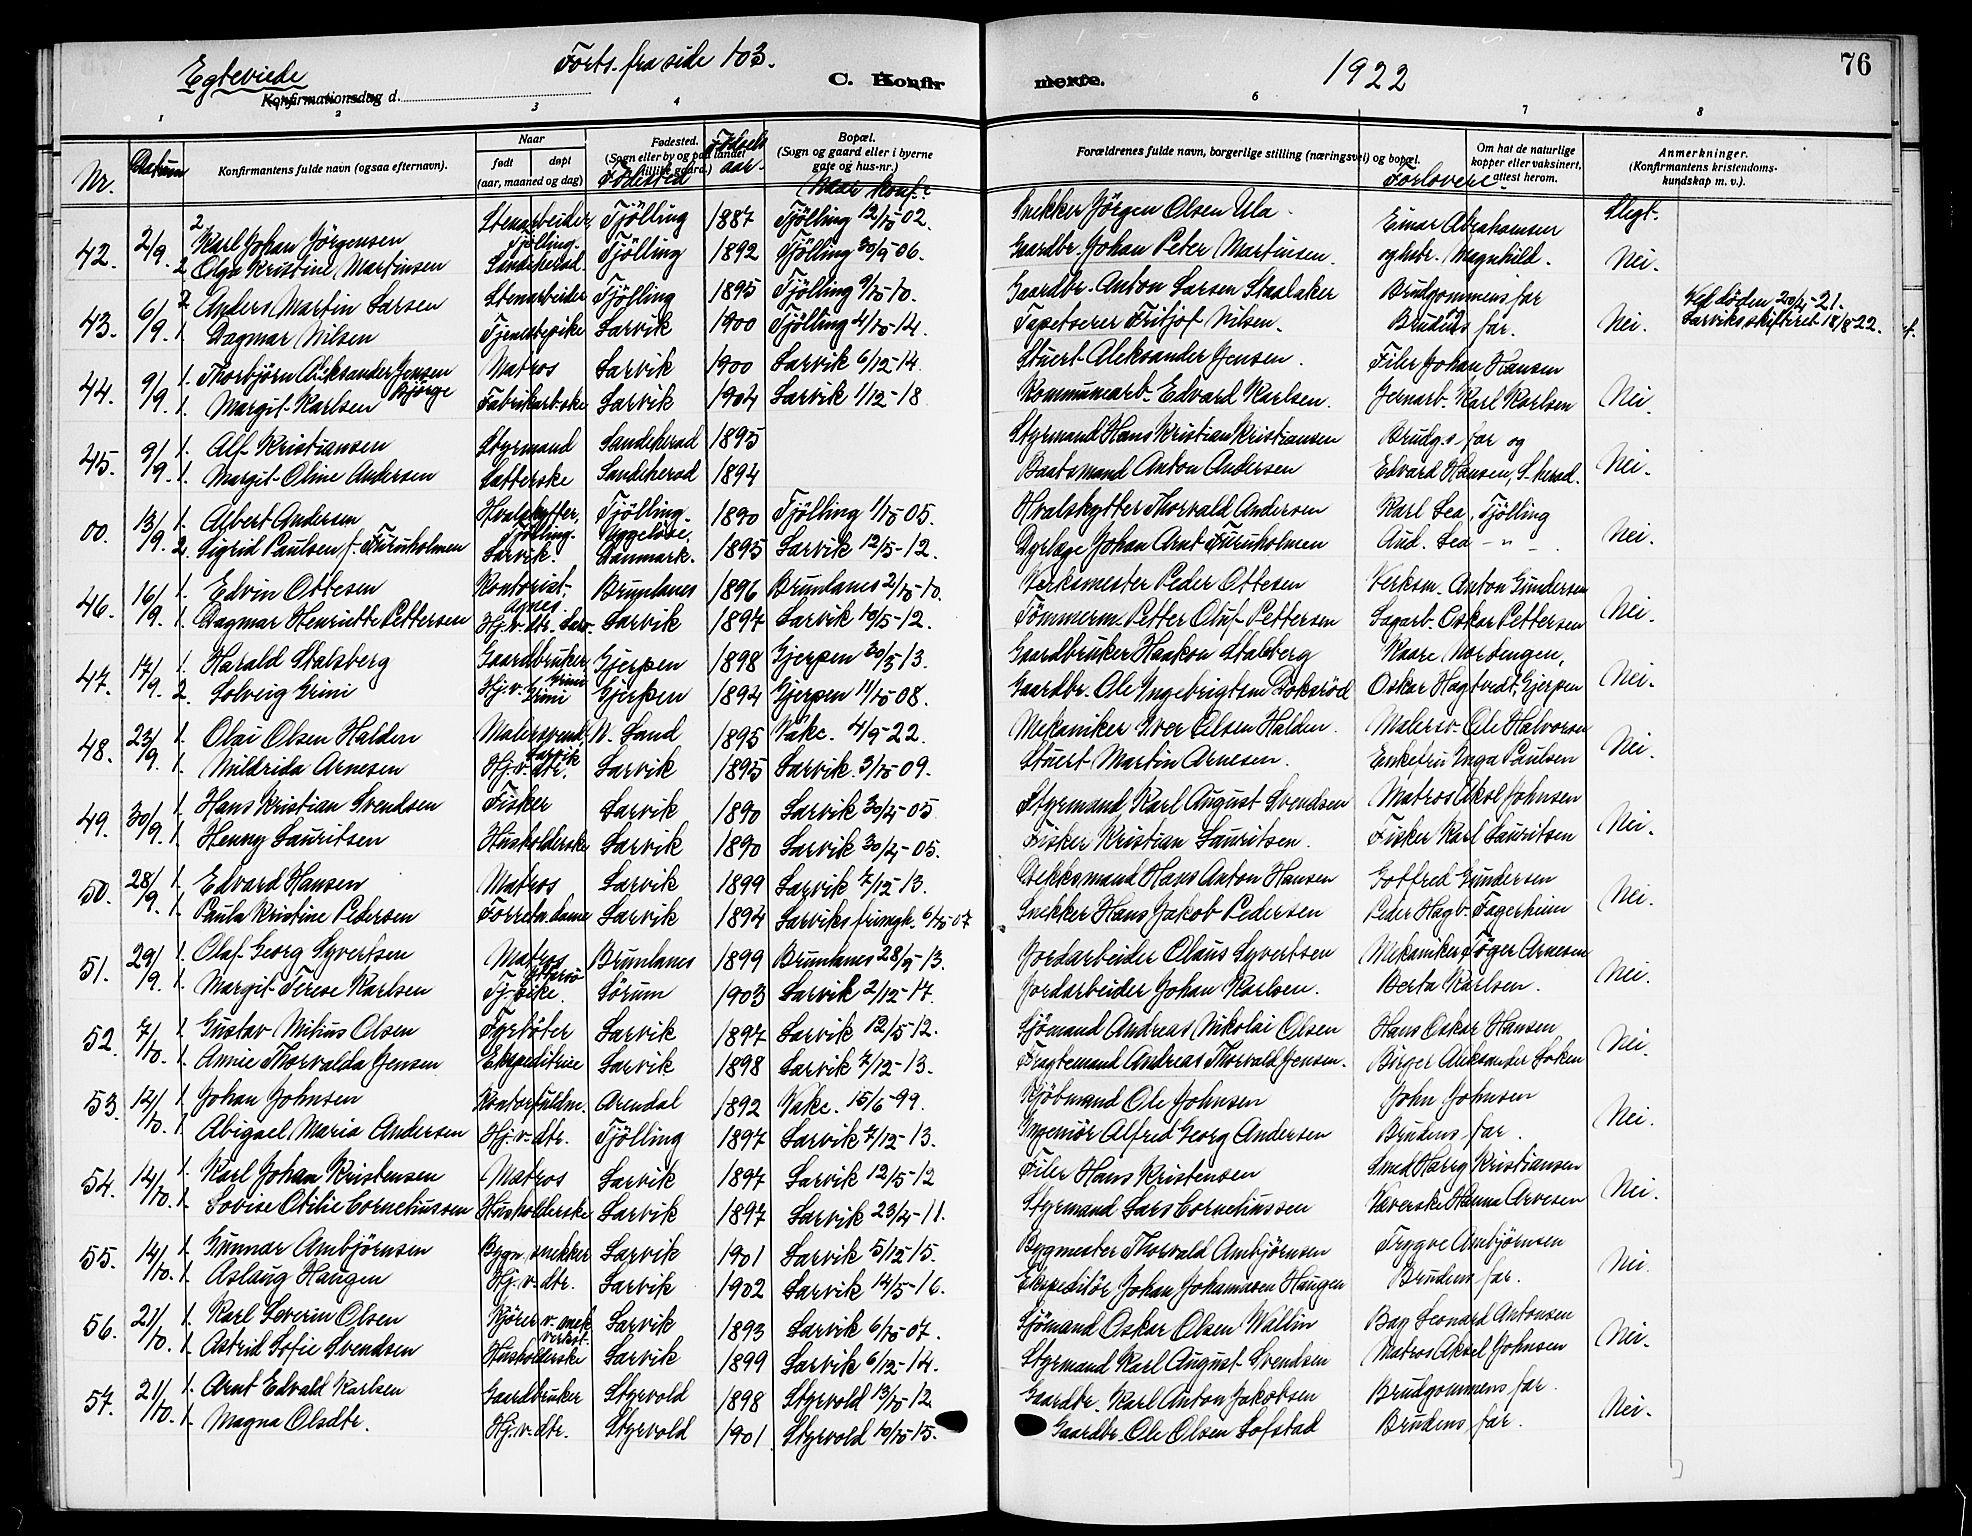 Egteviede Forts. fra side 103. C. Konfir merte. 1922 76
Konfirmationsdag d.
1 2 3 4 6 7 8
Nr. Datum Konfirmantens fulde navn (ogsaa efternavn). Naar født døpt (aar, maaned og dag) Fødested. (Sogn eller by og paa landet tillike gaard.) Fødested Fødselsaar. Bopæl. (Sogn og gaard eller i byerne gate og hus-nr.) Naar konf.? Forældrenes fulde navn, borgerlige stilling (næringsvei) og bopæl. Forlovere. Om hat de naturlige kopper eller vaksinert, attest herom. Slegt. Anmerkninger. (Konfirmantens kristendomskundskap m. v.).
42. 2/9. 2 Karl Johan Jörgensen Stenarbeider, Tjölling. Tjölling 1887 Tjölling 12/10-02. Snekker Jörgen Olsen Ula. Einar Abrahamsen
2 Olga Kristine Martinsen Sandeherad Tjölling 1892 Tjölling 30/9 06. Gaardbr. Johan Peter Martinsen. og hstr. Magnhild. Nei.
43. 6/9. 2 Anders Martin Larsen Stenarbeider Tjölling 1895 Tjölling 9/10-10. Gaardbr. Anton Larsen Staalaker Brudgommens far Ved döden 20/4-21.
1. Dagmar Nilsen Tjenestepike Larvik 1900 Tjölling 4/10-14. Tapetserer Fritjof Nilsen. Brudens far. Nei. Larviks skifteret 18/8-22.
44. 9/9. 1. Thorbjörn Aleksander Jensen Björge Matros Larvik 1900 Larvik 6/12-14. Stuert Aleksander Jensen. Filer Johan Hansen
1. Margit Karlsen Fabrikarb.ske Larvik 1904 Larvik 1/12-18 Kommunearb. Edvard Karlsen. Jernarb. Karl Karlsen Nei.
45. 9/9. 1. Alf Kristiansen Styrmand Sandeherad 1895 Styrmand Hans Kristian Kristiansen Brudg.s far og
1. Margit Oline Andersen Sandeherad 1894 Baatsmand Anton Andersen Edvard Hansen, S.herad. Nei.
00. 13/9. 1. Albert Andersen Hvalskytter, Tjölling. Tjölling. 1890 Tjölling 1/10 05. Hvalskytter Thorvald Andersen Karl Lea, Tjölling
2. Sigrid Paulsen f. Furuholmen Larvik. Uggelöse, Danmark. 1895 Larvik 12/5-12. Dyrlæge Johan Arnt Furuholmen Aud. Lea - " - Nei.
46. 16/9. 1. Edvin Ottesen Kontorist, Agnes. Brunlanes 1896 Brunlanes 2/10-10. Verksmester Peder Ottesen Verksm. Anton Gundersen
1. Dagmar Henriette Pettersen Hj.v. dtr. Larv. Larvik 1897 Larvik 10/5-12. Tömmerm. Petter Oluf Pettersen Sagarb. Oskar Pettersen Nei.
47. 17/9. 1. Harald Stalsberg Gaardbruker, Grini Gjerpen 1898 Gjerpen 30/3 13. Gaardbruker Haakon Stalsberg Kaare Nordengen,
2. Solveig Grini Hj.v. Grini Gjerpen 1894 Gjerpen 11/10 08. Gaardbr. Ole Ingebrigtsen Doksröd Oskar Hagtvedt, Gjerpen Nei.
48. 23/9. 1. Olai Olsen Halden Malersvend, Larvik N. Land 1895 Vakc. 4/9-22. Mekaniker Iver Olsen Halden. Malersv. Ole Halvorsen
1. Mildrida Arnesen Hj.v. dtr. Larvik 1895 Larvik 3/10-09. Stuert Martin Arnesen. Enkefru Inga Paulsen Nei.
49. 30/9. 1. Hans Kristian Svendsen Fisker Larvik 1890 Larvik 30/4-05 Styrmand Karl August Svendsen Matros Aksel Johnsen
1. Henny Lauritsen Husholderske Larvik 1890 Larvik 30/4-05. Fisker Kristian Lauritsen. Fisker Karl Lauritsen Nei.
50. 28/9. 1. Edvard Hansen Matros Larvik 1899 Larvik 7/12-13. Dekksmand Hans Anton Hansen Gotfred Gundersen
1. Paula Kristine Pedersen Forretn.dame Larvik 1894 Larviks frimgh. 6/10-07 Snekker Hans Jakob Pedersen Peder Hagb. Fagerheim Nei.
51. 29/9. 1. Olaf Georg Syvertsen Matros Brunlanes 1899 Brunlanes 28/9-13. Jordarbeider Olaus Syvertsen Mekaniker Töger Arnesen
1. Margit Terese Karlsen Tj. pike. Sörum 1903 Larvik 2/12-17. Jordarbeider Johan Karlsen. Berta Karlsen. Nei.
52. 7/10. 1. Gustav Milius Olsen Fyrböter Larvik 1897 Larvik 12/5-12. Sjömand Andreas Nikolai Olsen Hans Oskar Hansen
1. Annie Thorvalda Jensen Ekspeditrice Larvik 1898 Larvik 7/12-13. Fragtemand Andreas Thorvald Jensen. Birger Aleksander Loken Nei.
53. 12/10. 1. Johan Johnsen Kontorfuldm. Arendal 1892 Vakc. 15/6-99. Kjöbmand Ole Johnsen John Johnsen
1. Abigael Maria Andersen Hj.v. dtr. Tjölling 1897 Larvik 7/12-13. Ingeniör Alfred Georg Andersen Brudens far. Nei.
54. 14/10. 1. Karl Johan Kristensen Matros Larvik 1897 Larvik 12/5-12 Filer Hans Kristensen Smed Harry Kristiansen
1. Lovise Otilie Corneliussen Husholderske Larvik 1897 Larvik 23/4-11. Styrmand Lars Corneliussen Væverske Hanna Arvesen Nei.
55. 14/10. 1. Gunnar Ambjörnsen Bygn. snekker Larvik 1901 Larvik 5/12-15. Bygmester Thorvald Ambjörnsen Trygve Ambjörnsen
1. Aslaug Haugen Hj.v. dtr. Larvik 1902 Larvik 14/5-16. Ekspeditör Johan Johannesen Haugen Brudens far. Nei.
56. 21/10. 1. Karl Severin Olsen Kjörer v. mek. verkst. Larvik 1893 Larvik 6/10-07. Sjömand Oskar Olsen Wallin Leonard Antonsen
1. Astrid Sofie Svendsen Husholderske Larvik 1899 Larvik 6/12-14. Styrmand Karl August Svendsen Matros Aksel Johnsen Nei.
57. 21/10. 1. Arnt Edvald Karlsen Gaardbruker Styrvold 1898 Styrvold 13/10-12. Gaardbr. Karl Anton Jakobsen Brudgommens far.
1. Magna Olsdtr. Hj.v. dtr. Styrvold 1901 Styrvold 10/10-15. Gaardbr. Ole Olsen Lofstad Brudens far. Nei.